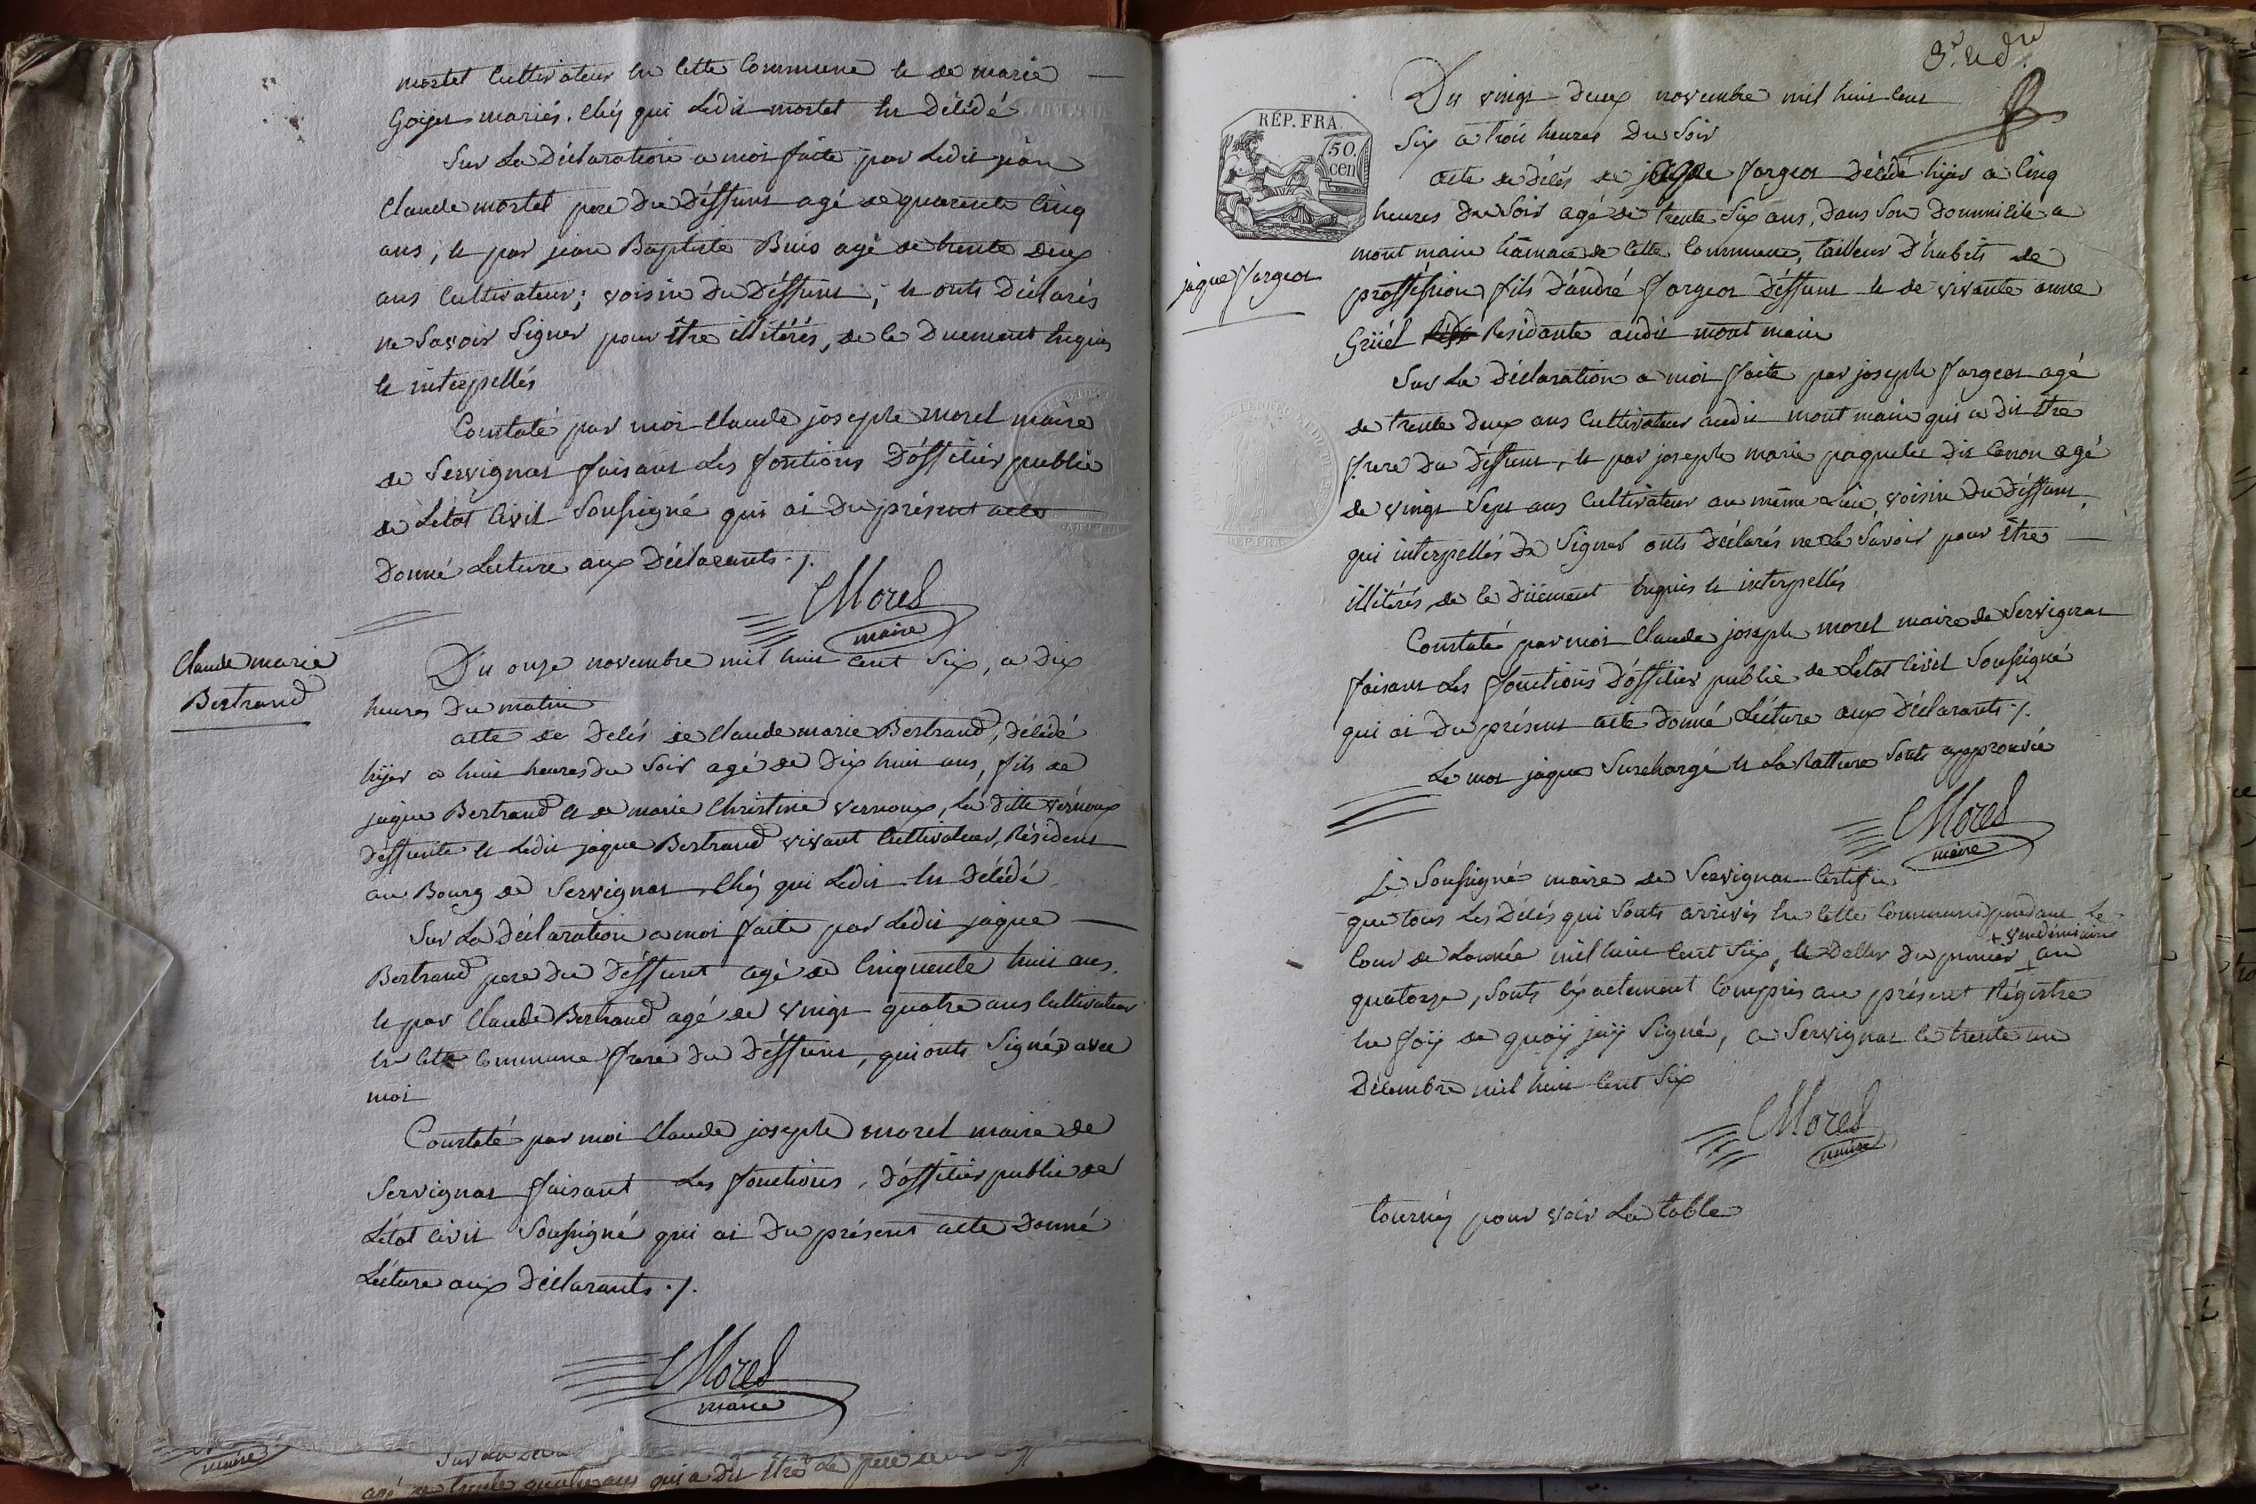 mortel Cultivateur en Cette Commune et de marie
Goyet mariés. Chéz qui Ledit mortel est Décédé
Sur La Déclaration a moi faite par Ledit jean
Claude mortel pere du Déffunt agé de quarente Cinq
ans, et par jean Baptiste Buis agé de trente deux
ans Cultivateur; voisin du Déffunt; et onts Déclarés
ne Savoir Signer pour être illitérés, de Ce Duement Enquis
et interpellés
Constaté par moi Claude joseph morel maire
de Servignat faisant Les fontions D'offitier public
de L'état Civil Soussigné qui ai Du présent acte
Donné Lecture aux Déclarants ./.
Morel
maire
Claude marie
Bertrand
Du onze novembre mil huit Cent Six, a dix
heures Du matin
acte de Décés de Claude marie Bertrand, Décédé
hijer a huit heures du Soir agé de Dix huit ans, fils de
jaque Bertrand et de marie Christine vernoux, La ditte vernoux
Déffunte et Ledit jaque Bertrand vivant Cultivateur, Résident
au Bourg de Servignat Chéz qui Ledit est Décédé
Sur La déclaration a moi faite par Ledit jaque
Bertrand pere du Déffunt agé de Cinquente huit ans.
et par Claude Bertrand agé de vingt quatre ans Cultivateur
en Cette Commune frere du Déffunt, qui onts Signés avec
moi
Constaté par moi Claude joseph morel maire de
Servignat faisant Les fonctions D'offitier public de
L'état Civil Soussigné qui ai Du présent acte Donné
Lecture aux Déclarants ./.
Morel
maire
maire
agé de trente quatre ans qui a dit être
RÉP. FRA.
50.
cen
jaque fargeot
Du vingt Deux novembre mil huit Cent
Six a trois heures Du Soir
acte de Décés de jaque fargeot Décédé hijer a Cinq
heures du Soir agé de trente Six ans, Dans Son Dommicile a
mont main hamaux de Cette Commune, tailleur D'habits de
proffession fils D'andré fargeot Déffunt et de vivante anne
Grüel Residante audit mont main
Sur La Déclaration a moi faite par joseph fargeot agé
de trente Deux ans Cultivateur audit mont main qui a dit être
frere du Deffunt, et par joseph marie paquelet dit Cenon agé
de vingt Sept ans Cultivateur au même Lieu voisin du Déffunt,
qui interpellés de Signer onts Déclarés ne Le Savoir pour être
illitérés de Ce Düement Enquis et interpellés
Constaté par moi Claude joseph morel maire de Servignat
faisant Les fonctions D'offitier public de L'état Civil Soussigné
qui ai Du présent acte Donné Lecture aux Déclarants ./.
Le mot jaque Surchargé et La Ratture Sonts approuvée
Morel
maire
Le Soussigné maire de Servignat Certifie
que tous Les Décés qui Sonts arrivés En Cette Commune pendant Le
+ vendémiaire
Cour de L'année mil huit Cent Six, et Datter du premier + an
quatorze, Sonts Exactement Compris au présent Régistre
En foij de quoij j'aij Signé, a Servignat Le trente un
Décembre mil huit Cent Six
Morel
maire
tournéz pour voir La table